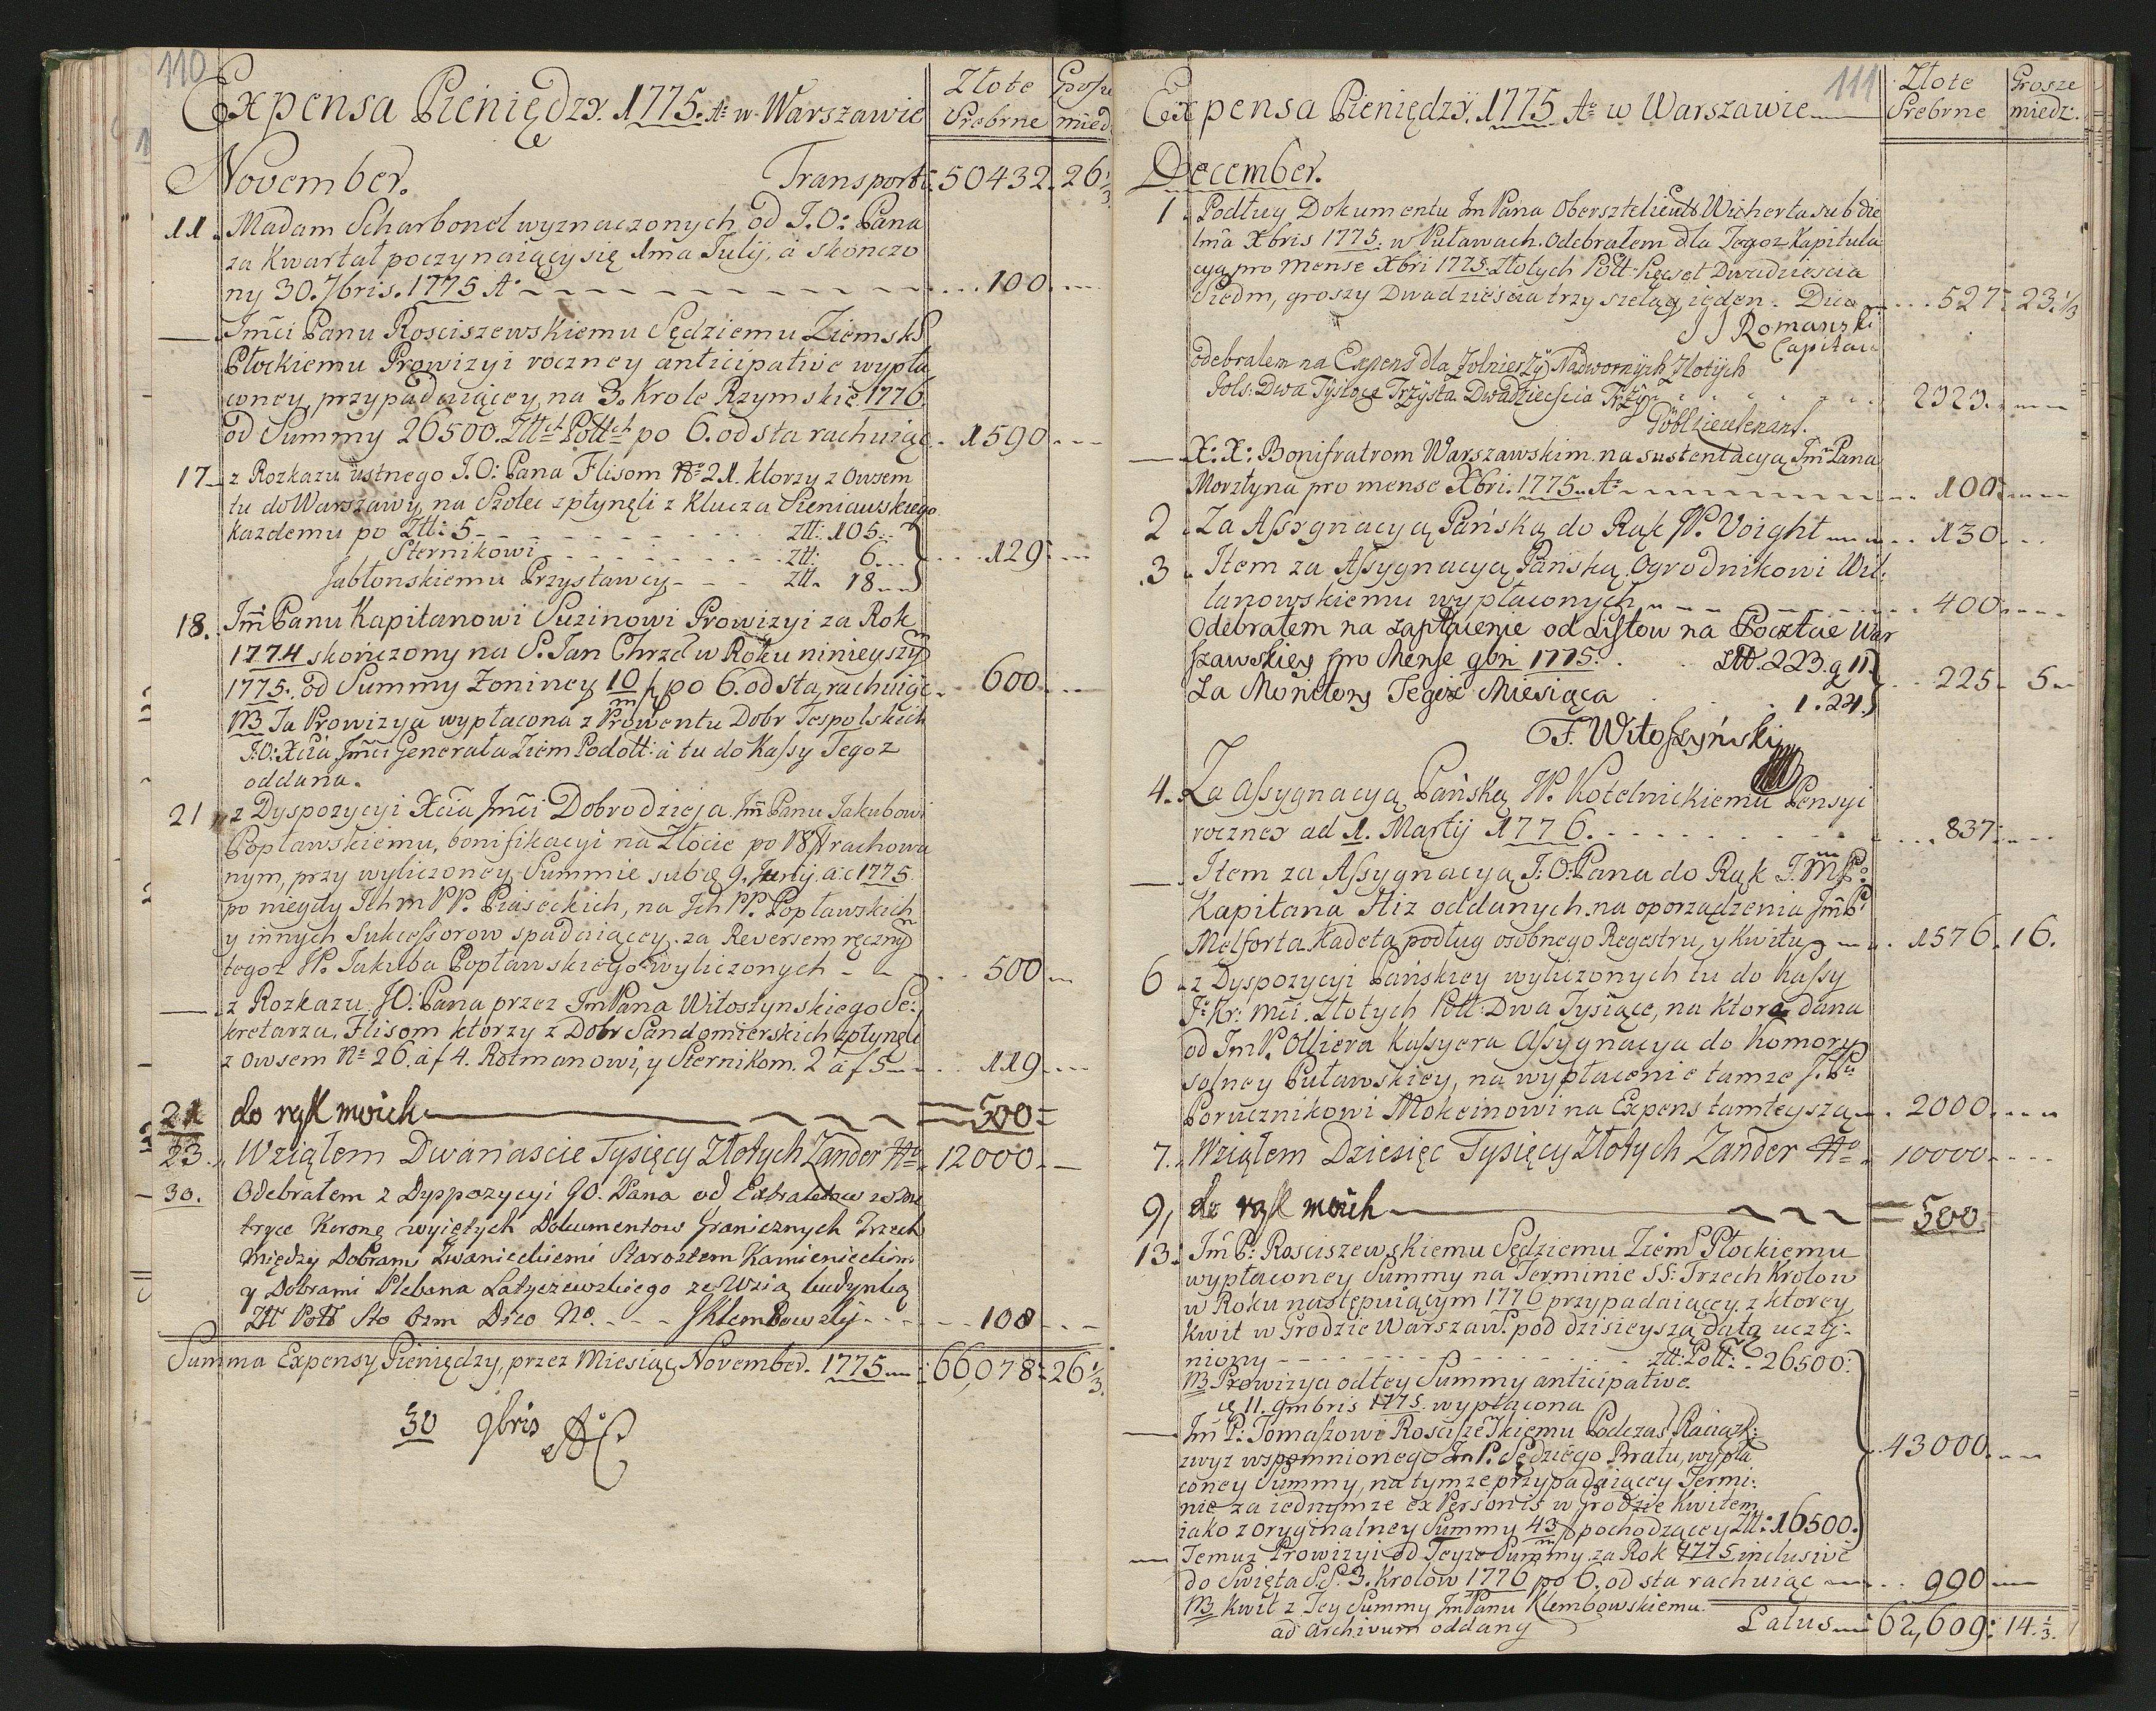 110
Expensa Pieniędzy. 1775. Ao w Warszawie
Złote Srebrne
Grosze mied:
November. Transport. 50432. 26 1/3
11. Madam Scharbonel wyznaczonych od J.O: Pana
za Kwartał poczynaiący się 1ma Julij, a skonczo
ny 30. 7bris. 1775 Ao 100.
Jmći Panu Rosciszewskiemu Sędziemu Ziemsk
Płockiemu Prowizyi roczney anticipative wypła
coney, przypadaiącey na 3. Krole Rzymskie. 1776.
od Summy 26500. Złtch Polłch po 6. od sta rachuiąc. 1590
17 z Rozkazu ustnego J.O: Pana Flisom No 21. ktorzy z owsem
tu do Warszawy, na Szolec spłynęli z Klucza Sieniawskiego
każdemu po Złł: 5 złł: 105.
Sternikowi złł: 6. 129
Jabłonskiemu Przystawcy złł. 18
18. Jm Panu Kapitanowi Suzinowi Prowizyi za Rok
1774 skończony na S. Jan Chrzć w Roku ninieyszy
1775. od Summy Zoniney 10/m po 6. od sta rachuiąc 600.
NB Ta Prowizya wypłacona z Prowentu Dobr Tespolskich
J:O: Xcia Jmći Generała Ziem Podoll: a tu do Kassy Tegoz
oddana.
21 z Dyspozycyi Xcia Jmći Dobrodzieja Jm Panu Jakubowi
Popławskiemu, bonifikacyi na Złocie po 18 rachowa
nym, przy wyliczoney Summie sub 9. Junij. a: 1775.
po niegdy Ich m PP. Piaseckich, na Ich PP. Popławskich
y innych Sukcessorow spadaiącey. za Reversem ręczny
tegoz W. Jakuba Popławskiego wyliczonych 500
z Rozkazu JO: Pana przez Jm Pana Witoszynskiego Se:
kretarza, Flisom ktorzy z Dobr Sandomierskich spłynęli
z owsem No 26. a f 4. Rotmanowi, y Sternikom. 2 a f 5 119
21 do rąk moich 500
23. Wziąłem Dwanascie Tysięcy Złotych Zander 12000
30. Odebrałem z Dyppozycyi JO. Pana od Extraktow z Me
tryce Korone wyiętych Dokumentow Granicznych Trzech
między Dobrami Zwanieckiemi Starostem Kamienieckim
y Dobrami Plebana Latyczewskiego ze Wsią budynką
Złł Poll Sto osm Dico No. Sklembowsky 108
Summa Expensy Pieniędzy, przez Miesiąc November. 1775 66,078. 26 1/3.
30 9bris
111
Expensa Pieniędzy. 1775 Ao w Warszawie
Złote Srebrne
Grosze miedz:
December.
1. Podług Dokumentu Jm Pana Obersztelieuts Wicherta sub die
1ma Xbris 1775. w Puławach. Odebrałem dla Tegoz Kapitula
cyą pro Mense Xbri 1775. Złotych Poll: Pięcset Dwadziescia
Siedm, groszy Dwadzieścia trzy szeląg ieden. Dico 527. 23. 1/3
Romanski
Capitan
odebralem na Expens dla Zolnierzÿ Nadwornÿch Zlotÿch
Pols: Dwa Tÿsiące Trzÿsta Dwadziescia Trzÿ 2323.
X: X: Bonifratrom Warszawskim na sustentacyą Jm Pana
Morsztyna pro mense Xbri. 1775. Ao 100
2. Za Assygnacyą Pańską do Rąk W. Voight 130
3. Item za Assygnacyą Pańską Ogrodnikowi Wil:
lanowskiemu wypłaconych 400
Odebrałem na zapłacenie od Listow na Poczcie War
szawskiey pro Mense 9bri 1775. Złł. 223. g 11
Za Monitory Tegoż Miesiąca 1. 24. 225. 5
F. Witoszyński
4. Za Assygnacyą Pańską W. Kotelnickiemu Pensyi
roczney ad 1. Martij 1776. 837
Item za Assygnacyą J: O: Pana do Rąk J. m P:
Kapitana Stiz oddanych na oporządzenia Jm P
Melforta Kadeta podług osobnego Regestru, y Kwitu 1576. 16.
6 z Dyspozycyi Pańskiey wyliczonych tu do Kassy
J: Kr: Mći. Złotych Poll: Dwa Tysiące, na ktorą dana
od Jm P. Olliera Kassyera Assygnacya do Komory
solney Puławskiey, na wypłacenie tamże J. Pu
Porucznikowi Mokcinowi na Expens tamteyszą 2000
7. Wziąłem Dziesięc Tysięcy Złotych Zander 10000
9, do rąk moich 500
13. Jm P: Rosciszewskiemu Sędziemu Ziem Płockiemu
wypłaconey Summy na Terminie SS: Trzech Krolow
w Roku następuiącym 1776 przypadaiącey. z ktorey
Kwit w Grodzie Warszaw: pod dzisieyszą datą uczy:
niony złł: Poll: 26500.
NB Prowizya od tey Summy anticipative.
11. 9mbris 1775. wypłacona
Jm P: Tomaszowi Rosciszewskiemu Podczas Raciąz:
zwyz wspomnionego Jm P. Sędziego Bratu, wypła
coney Summy, na tymze przypadaiącey Termi:
nie za iednymze ex Personis w Grodzie Kwitem
iako z oryginalney Summy 43/m pochodzącey Złł: 16500. 43000
Temuż Prowizyi od Teyze Summy za Rok 1775 inclusive
do Swięta S.S. 3. Krolow 1776 po 6. od sta rachuiąc 990
NB Kwit z Tey Summy Jm Panu Klembowskiemu
ad Archivum oddany
Latus 62,609: 14. 1/3.